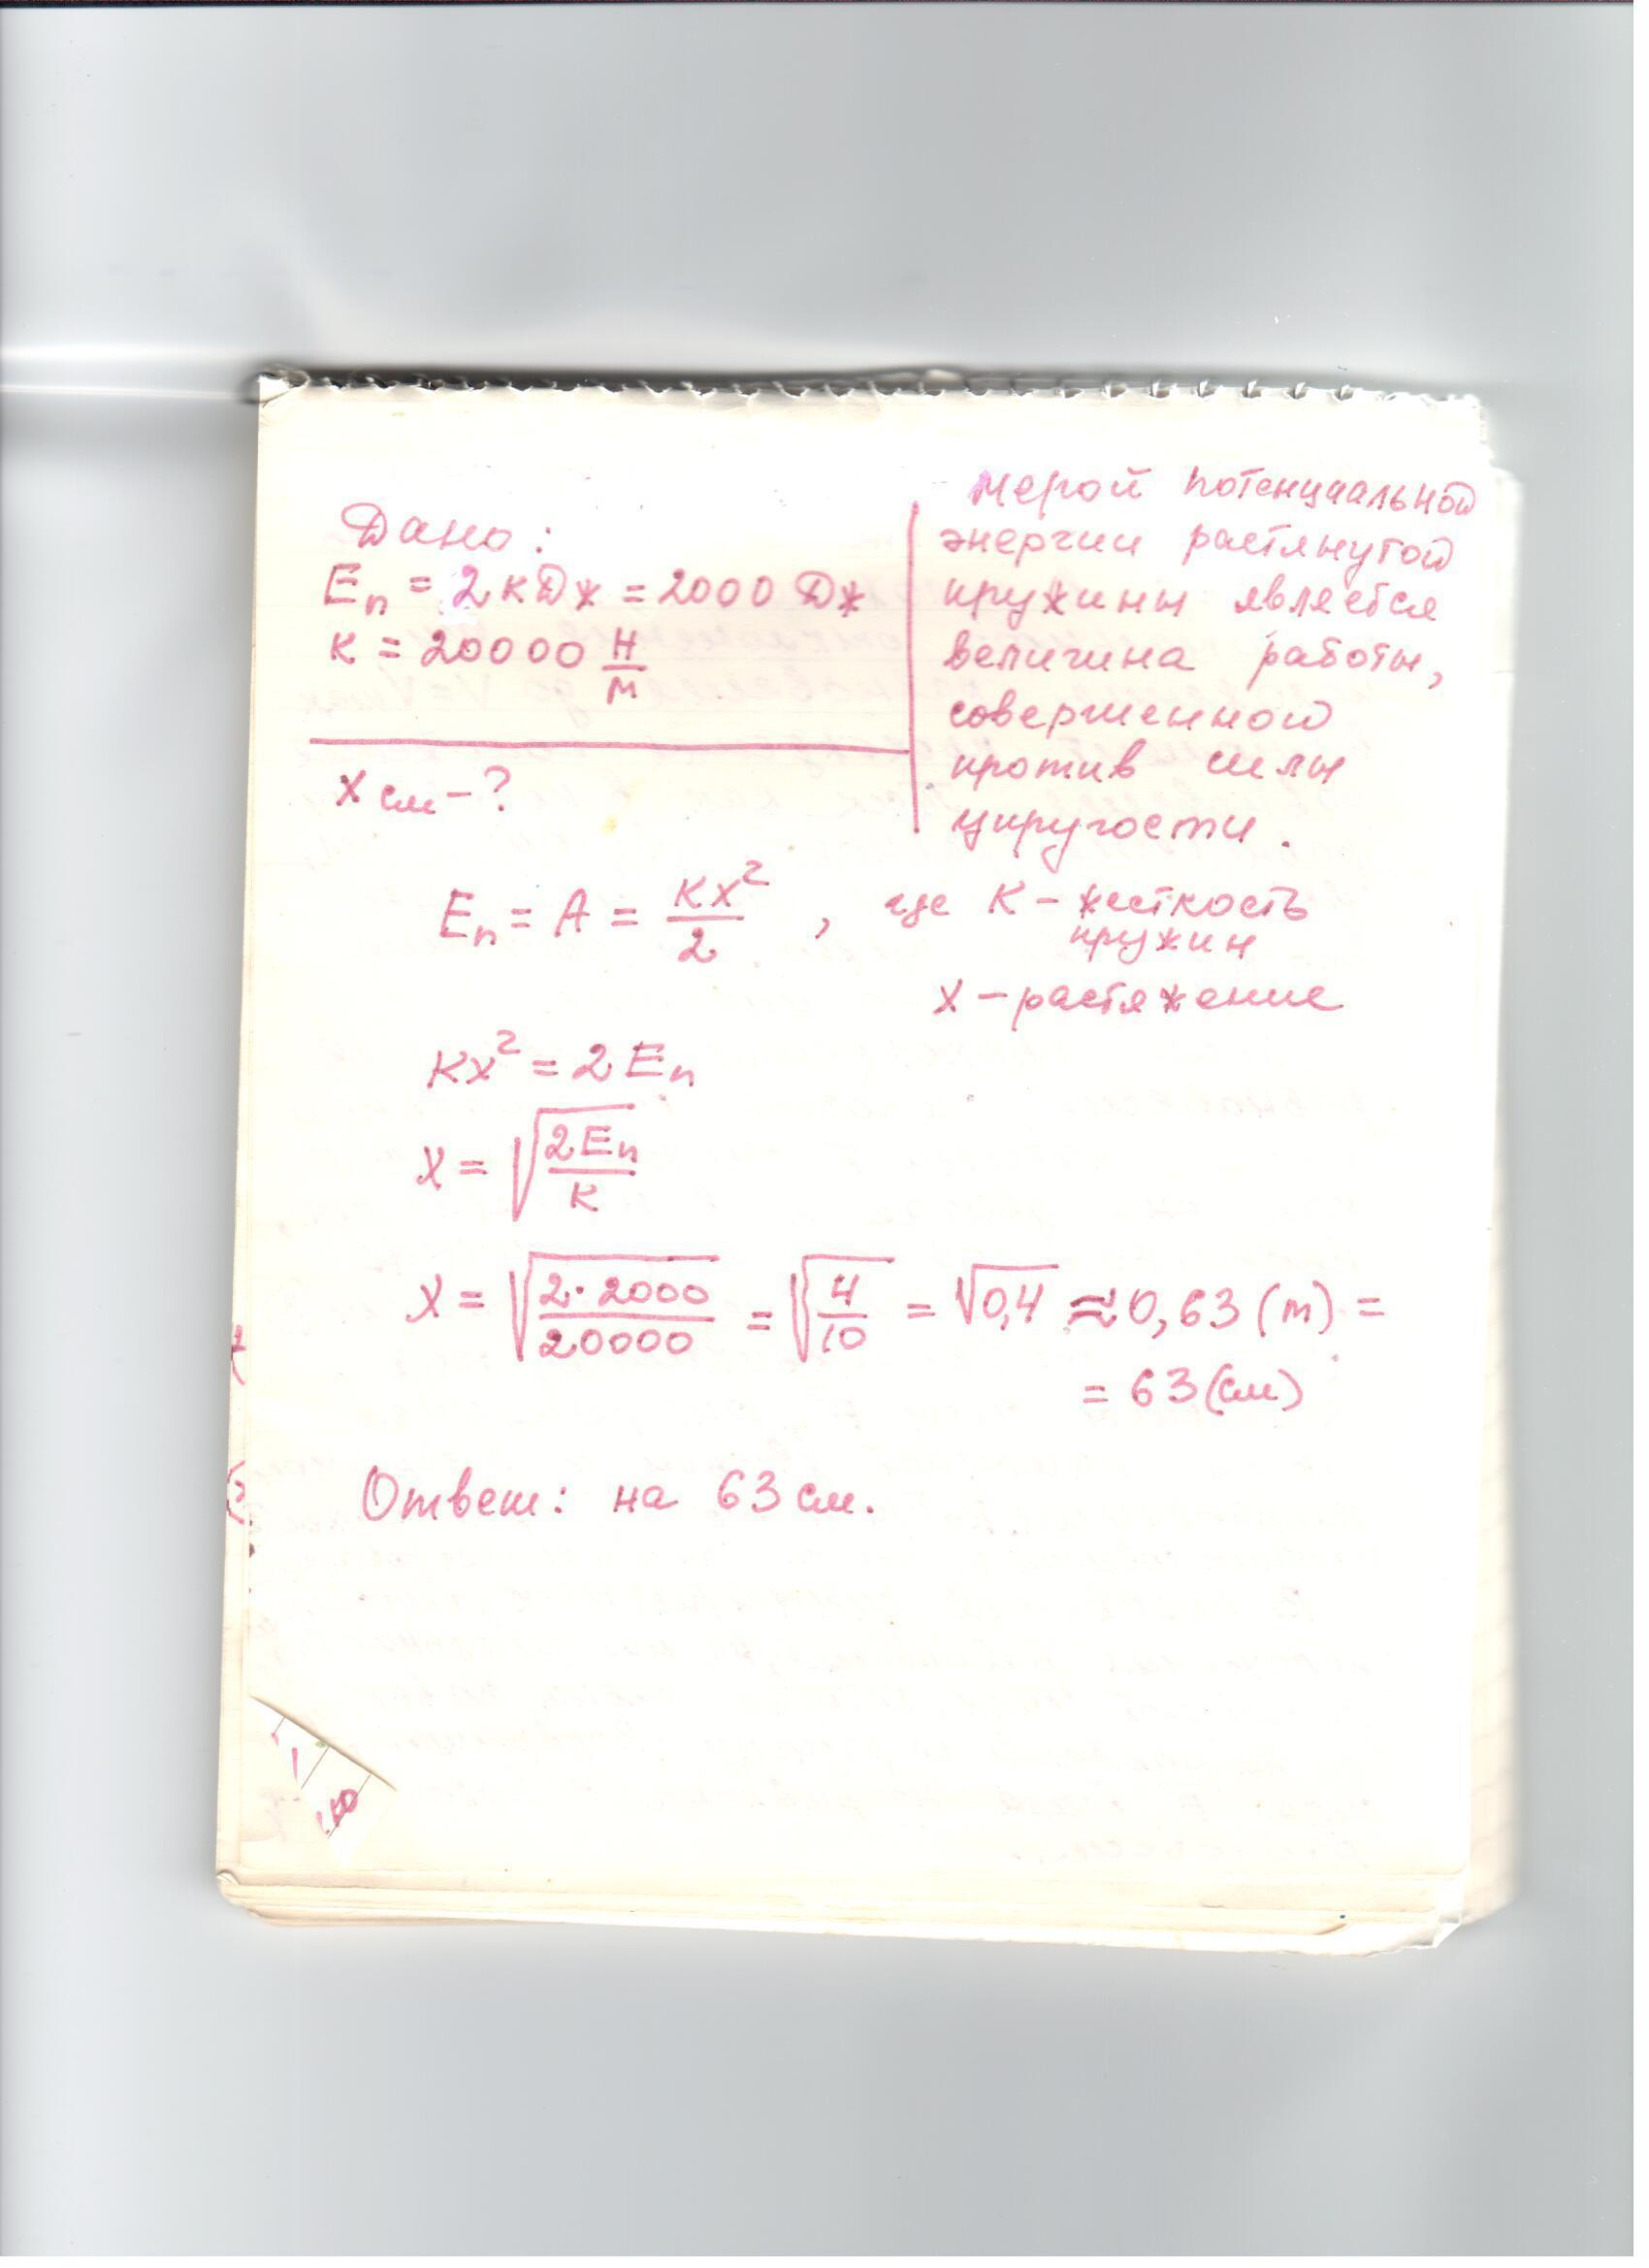 Дано:
Eп = 2 кДж = 2000 Дж
к = 20000 Н/м
X см - ?
Мерой потенциальной
энергии растянутой
пружины является
величина работы,
совершенной
против силы
упругости.
Eп = A = кx²/2 , где К - жесткость
пружин
X - растяжение
кx² = 2 Eп
X = √(2Eп/к)
X = √(2·2000/20000) = √(4/10) = √0,4 ≈ 0,63 (m) =
= 63 (см)
Ответ: на 63 см.